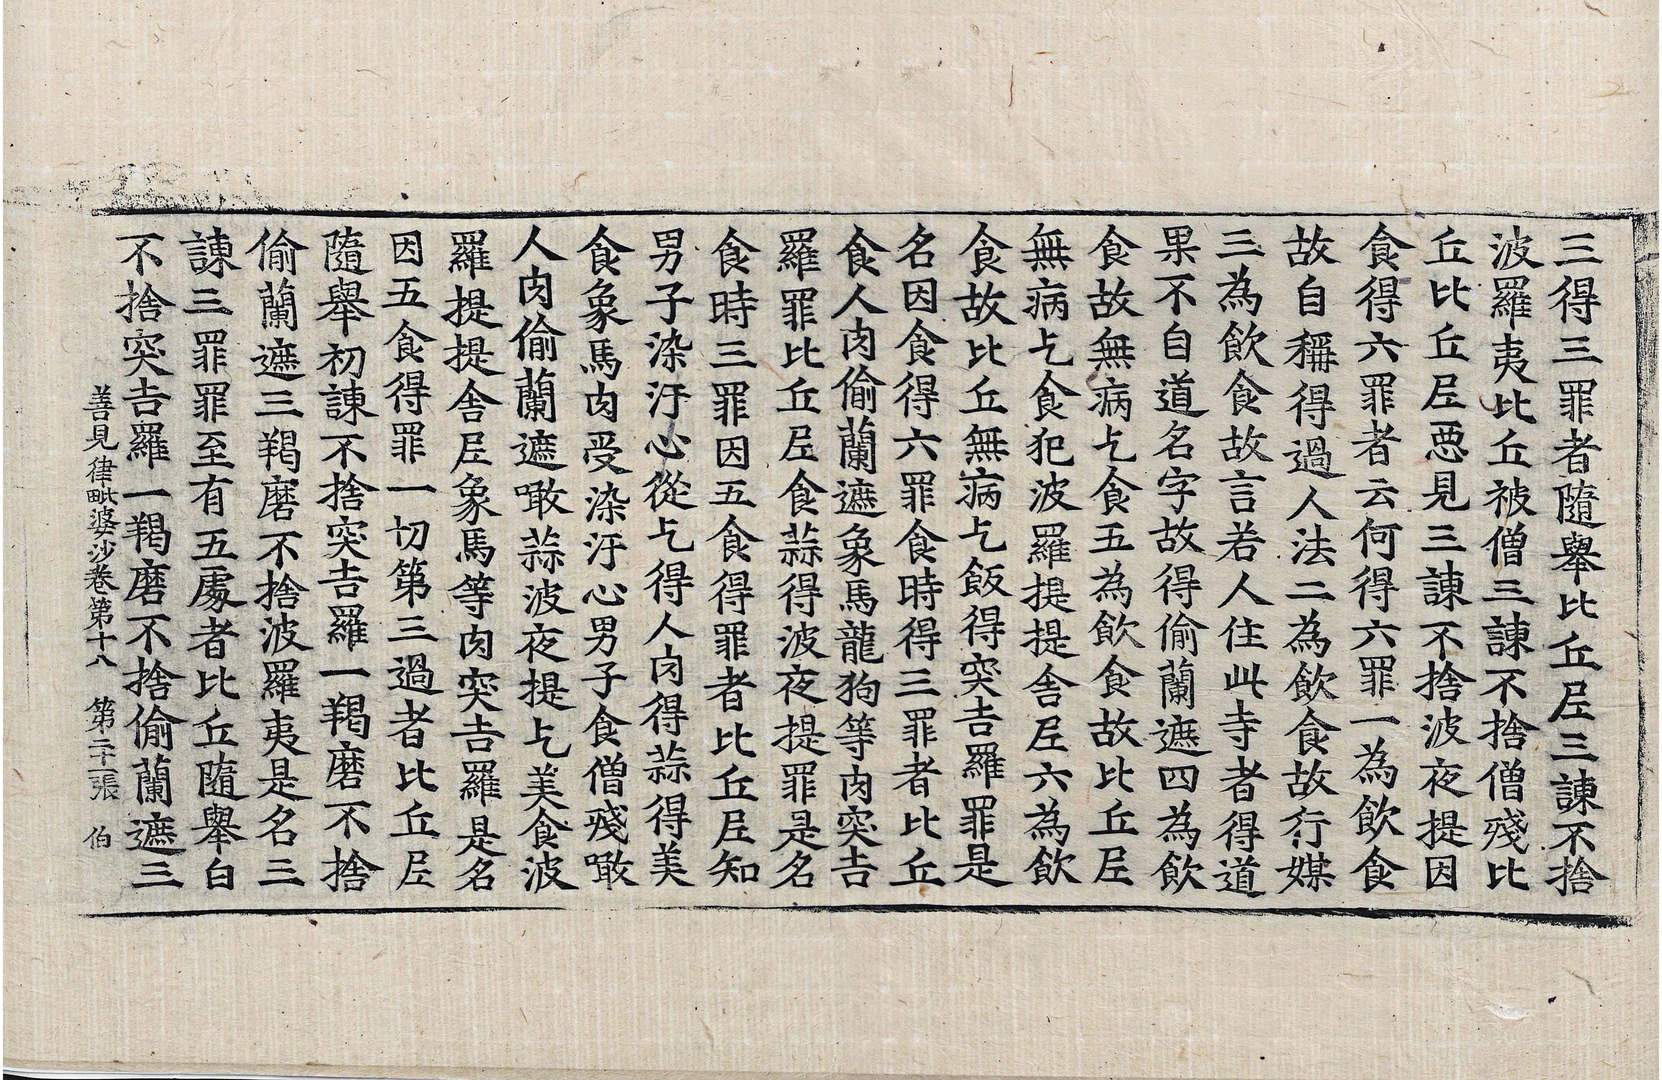 三得三罪者隨舉比丘𡰱三諫不捨
波羅夷比丘被僧三諫不捨僧殘比
丘比丘𡰱惡見三諫不捨波夜提因
食得六罪者云何得六罪一為飲食
故自稱得過人法二為飲食故行媒
三為飲食故言若人住此寺者得道
果不自道名字故得偷蘭遮四為飲
食故無病乞食五為飲食故比丘𡰱
無病乞食犯波羅提提舍𡰱六為飲
食故比丘無病乞飯得突吉羅罪是
名因食得六罪食時得三罪者比丘
食人肉偷蘭遮象馬龍狗等肉突吉
羅罪比丘𡰱食蒜得波夜提罪是名
食時三罪因五食得罪者比丘𡰱知
男子染汙心從乞得人肉得蒜得美
食象馬肉受染汙心男子食僧殘噉
人肉偷蘭遮噉蒜波夜提乞美食波
羅提提舍𡰱象馬等肉突吉羅是名
因五食得罪一切第三過者比丘𡰱
隨舉初諫不捨突吉羅一羯磨不捨
偷蘭遮三羯磨不捨波羅夷是名三
諫三罪罪至有五處者比丘隨舉白
不捨突吉羅一羯磨不捨偷蘭遮三
善見律毗婆沙卷第十八 第二十張 伯